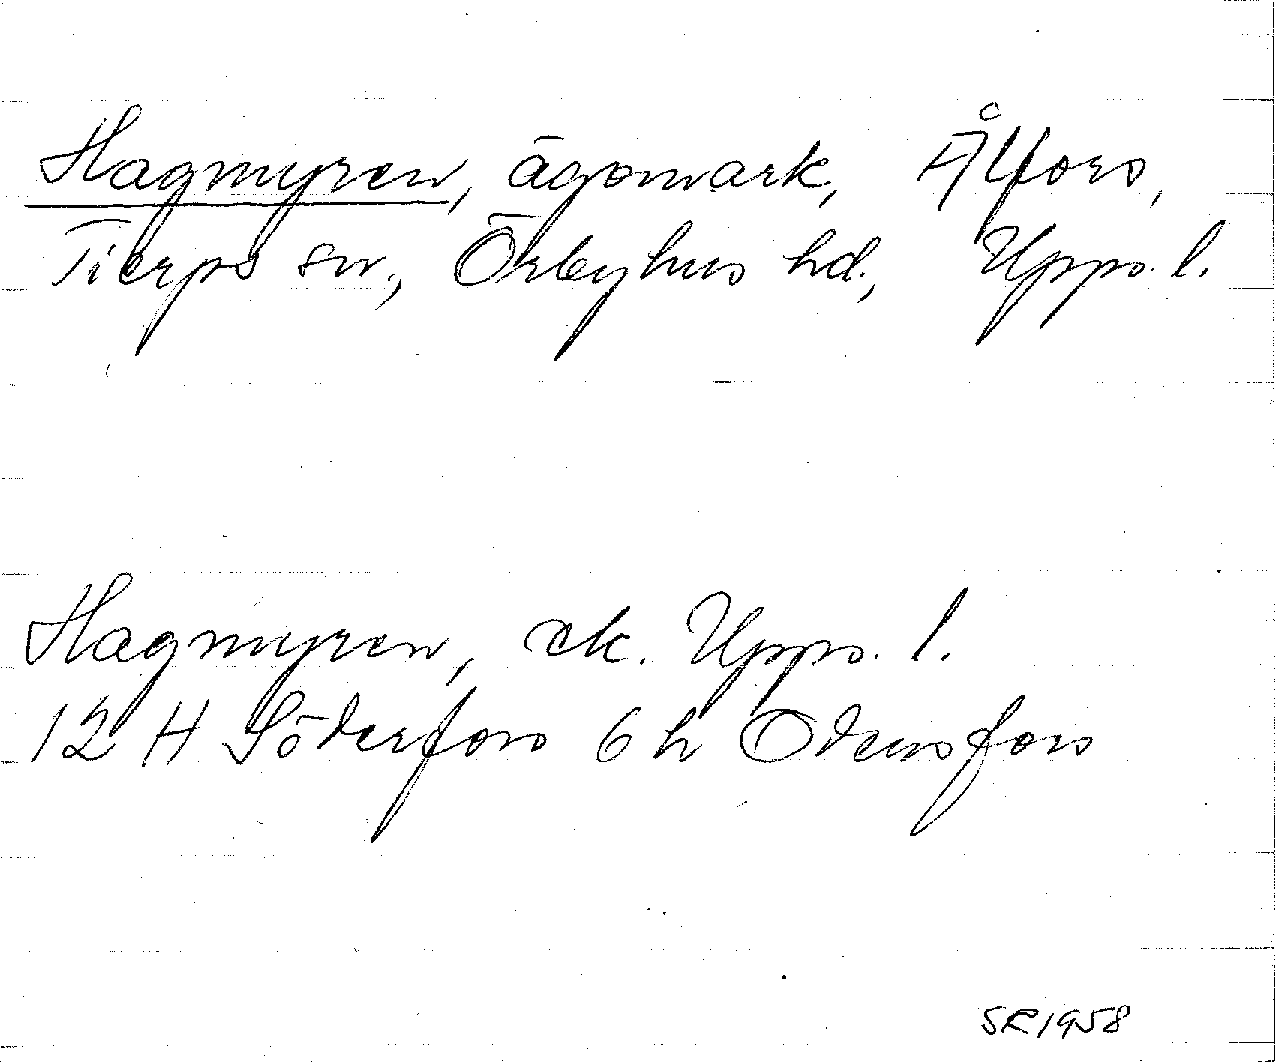 Hagmyren, ägomark, Ålfors,
Tierps sn, Örbyhus hd, Upps. l.
Hagmyren, ek. Upps. l.
12 H Söderfors 6 h Odensfors
SR 1958